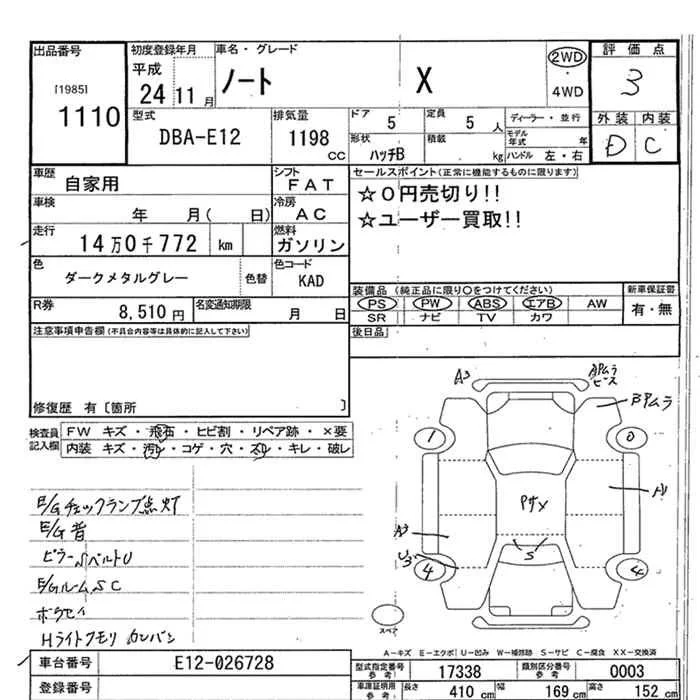 出品番号
[1985]
1110
初度登録年月
平成
24 11 月
車名・グレード
ノート X
2WD
・
4WD
評価点
3
外装 内装
D C
型式
DBA-E12
排気量
1198
CC
ドア
5
定員
5 人
形状
ハッチB
積載
kg
ディーラー・並行
モデル年式 年
ハンドル 左・右
車歴
自家用
シフト
FAT
車検
年 月( 日)
冷房
AC
走行
14万0千772 km
燃料
ガソリン
色
ダークメタルグレー
色替
色コード
KAD
R券
8,510 円
名変通知期限
月 日
セールスポイント(正常に機能するものに限ります)
☆0円売切り!!
☆ユーザー買取!!
装備品 (純正品に限り○をつけてください)
PS PW ABS エアB AW
SR ナビ TV カワ
新車保証書
有・無
後日品
注意事項申告欄(不具合内容等は具体的に記入して下さい)
修復歴 有〔箇所 〕
検査員記入欄
FW キズ・飛石・ヒビ割・リペア跡・×要
内装 キズ・汚レ・コゲ・穴・スレ・キレ・破レ
E/Gチェックランプ点灯
E/G音
E/Gルーム S C
A3
BPムラ
1
0
A3
4
4
S
スペア
A－キズ E－エクボ U－凹み W－補修跡 S－サビ C－腐食 XX－交換済
車台番号
E12-026728
登録番号
型式指定番号
参考
17338
類別区分番号
参考
0003
車庫証明用
参考
長さ 410 cm
幅 169 cm
高さ 152 cm